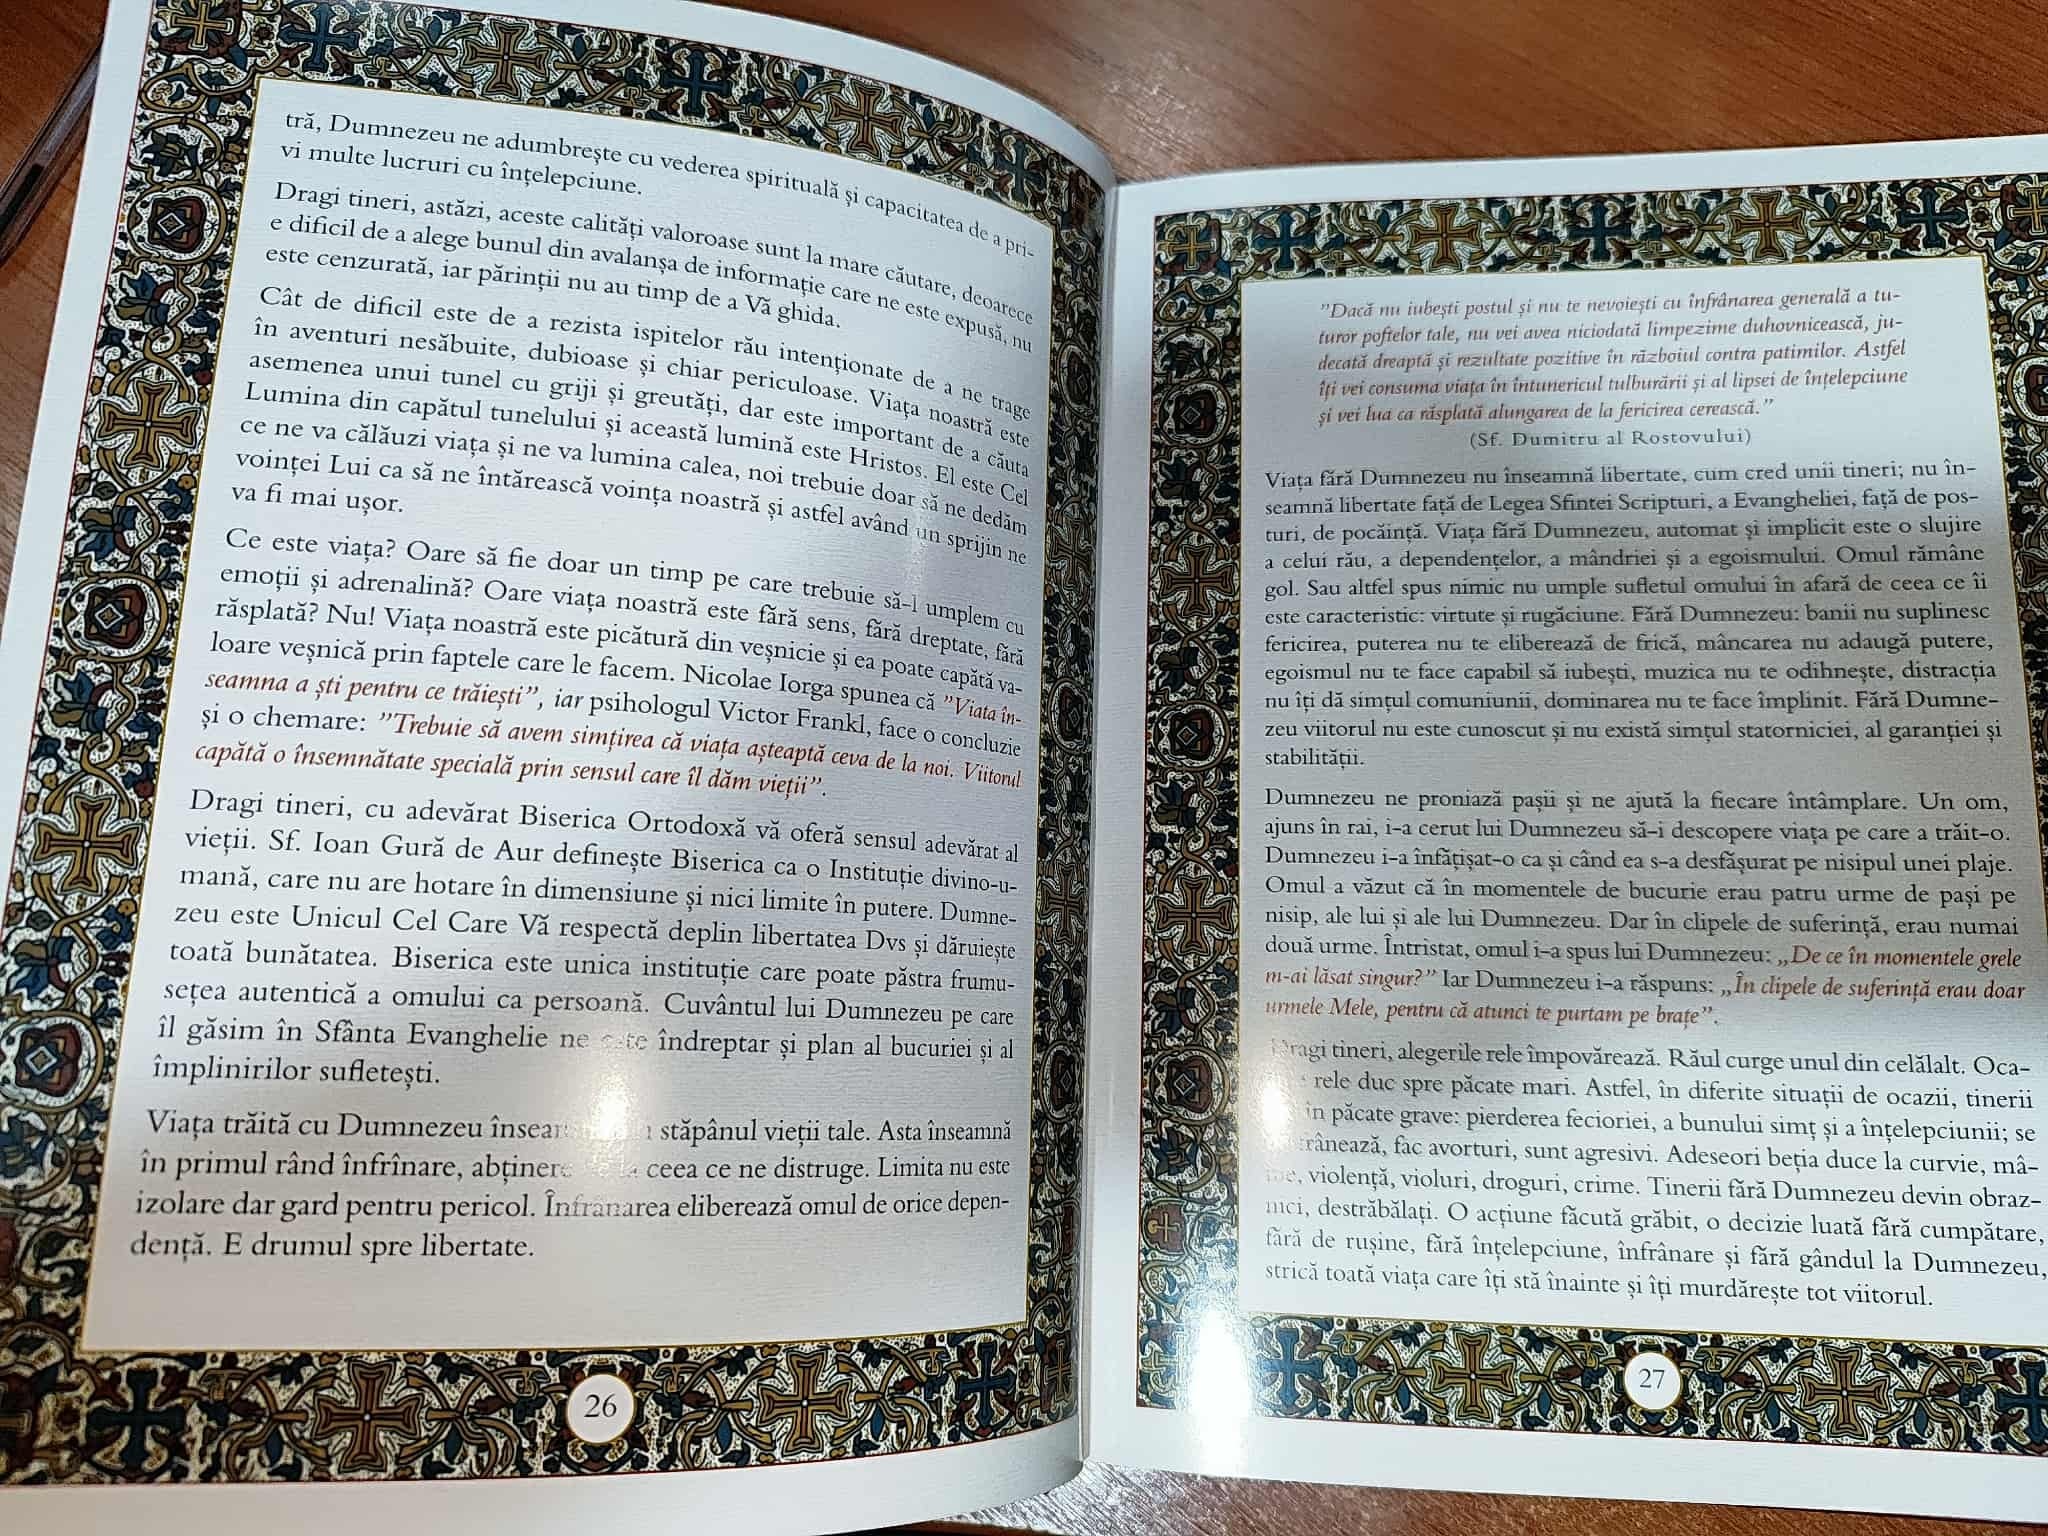 tră, Dumnezeu ne adumbrește cu vederea spirituală și capacitatea de a pri-
vi multe lucruri cu înțelepciune.
Dragi tineri, astăzi, aceste calități valoroase sunt la mare căutare, deoarece
e dificil de a alege bunul din avalanșa de informație care ne este expusă, nu
este cenzurată, iar părinții nu au timp de a Vă ghida.
Cât de dificil este de a rezista ispitelor rău intenționate de a ne trage
în aventuri nesăbuite, dubioase și chiar periculoase. Viața noastră este
asemenea unui tunel cu griji și greutăți, dar este important de a căuta
Lumina din capătul tunelului și această lumină este Hristos. El este Cel
ce ne va călăuzi viața și ne va lumina calea, noi trebuie doar să ne dedăm
voinței Lui ca să ne întărească voința noastră și astfel având un sprijin ne
va fi mai ușor.
Ce este viața? Oare să fie doar un timp pe care trebuie să-l umplem cu
emoții și adrenalină? Oare viața noastră este fără sens, fără dreptate, fără
răsplată? Nu! Viața noastră este picătură din veșnicie și ea poate capătă va-
loare veșnică prin faptele care le facem. Nicolae Iorga spunea că ”Viata în-
seamna a ști pentru ce trăiești”, iar psihologul Victor Frankl, face o concluzie
și o chemare: ”Trebuie să avem simțirea că viața așteaptă ceva de la noi. Viitorul
capătă o însemnătate specială prin sensul care îl dăm vieții”.
Dragi tineri, cu adevărat Biserica Ortodoxă vă oferă sensul adevărat al
vieții. Sf. Ioan Gură de Aur definește Biserica ca o Instituție divino-u-
mană, care nu are hotare în dimensiune și nici limite în putere. Dumne-
zeu este Unicul Cel Care Vă respectă deplin libertatea Dvs și dăruiește
toată bunătatea. Biserica este unica instituție care poate păstra frumu-
sețea autentică a omului ca persoană. Cuvântul lui Dumnezeu pe care
îl găsim în Sfânta Evanghelie ne este îndreptar și plan al bucuriei și al
împlinirilor sufletești.
Viața trăită cu Dumnezeu stăpânul vieții tale. Asta înseamnă
în primul rând înfrînare, ceea ce ne distruge. Limita nu este
izolare dar gard pentru pericol. Înfrânarea eliberează omul de orice depen-
dență. E drumul spre libertate.
26
”Dacă nu iubești postul și nu te nevoiești cu înfrânarea generală a tu-
turor poftelor tale, nu vei avea niciodată limpezime duhovnicească, ju-
decată dreaptă și rezultate pozitive în războiul contra patimilor. Astfel
îți vei consuma viața în întunericul tulburării și al lipsei de înțelepciune
și vei lua ca răsplată alungarea de la fericirea cerească.”
(Sf. Dumitru al Rostovului)
Viața fără Dumnezeu nu înseamnă libertate, cum cred unii tineri; nu în-
seamnă libertate față de Legea Sfintei Scripturi, a Evangheliei, față de pos-
turi, de pocăință. Viața fără Dumnezeu, automat și implicit este o slujire
a celui rău, a dependențelor, a mândriei și a egoismului. Omul rămâne
gol. Sau altfel spus nimic nu umple sufletul omului în afară de ceea ce îi
este caracteristic: virtute și rugăciune. Fără Dumnezeu: banii nu suplinesc
fericirea, puterea nu te eliberează de frică, mâncarea nu adaugă putere,
egoismul nu te face capabil să iubești, muzica nu te odihnește, distracția
nu îți dă simțul comuniunii, dominarea nu te face împlinit. Fără Dumne-
zeu viitorul nu este cunoscut și nu există simțul statorniciei, al garanției și
stabilității.
Dumnezeu ne proniază pașii și ne ajută la fiecare întâmplare. Un om,
ajuns în rai, i-a cerut lui Dumnezeu să-i descopere viața pe care a trăit-o.
Dumnezeu i-a înfățișat-o ca și când ea s-a desfășurat pe nisipul unei plaje.
Omul a văzut că în momentele de bucurie erau patru urme de pași pe
nisip, ale lui și ale lui Dumnezeu. Dar în clipele de suferință, erau numai
două urme. Întristat, omul i-a spus lui Dumnezeu: „De ce în momentele grele
m-ai lăsat singur?” Iar Dumnezeu i-a răspuns: „În clipele de suferință erau doar
urmele Mele, pentru că atunci te purtam pe brațe”.
Dragi tineri, alegerile rele împovărează. Răul curge unul din celălalt. Oca-
rele duc spre păcate mari. Astfel, în diferite situații de ocazii, tinerii
în păcate grave: pierderea fecioriei, a bunului simț și a înțelepciunii; se
fac avorturi, sunt agresivi. Adeseori beția duce la curvie, mâ-
violență, violuri, droguri, crime. Tinerii fără Dumnezeu devin obraz-
nici, destrăbălați. O acțiune făcută grăbit, o decizie luată fără cumpătare,
fără de rușine, fără înțelepciune, înfrânare și fără gândul la Dumnezeu,
strică toată viața care îți stă înainte și îți murdărește tot viitorul.
27